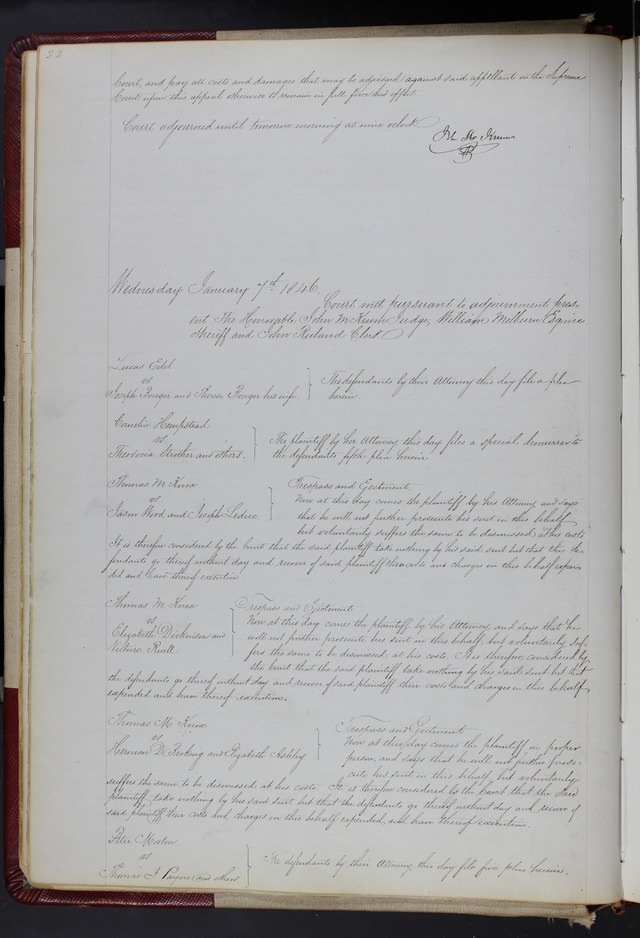 22
Court, and pay all costs and damages that may be adjudged against said appellant in the Supreme
Court upon this appeal otherwise to remain in full force and effect.
Court adjourned until tomorrow morning at nine oclock
Wednesday January 7th 1846.
Court met pursuant to adjournment, pres-
ent The Honorable John M Krum Judge, William Milburn Esquire
Sheriff and John Ruland Clerk
Lucas Edel
vs
Joseph Borger and Theresa Borger his wife.
The defendants by their Attorney this day file a plea
herein.
Cornelia Hempstead
vs
Theodocia Strother and others.
The plaintiff by her Attorney this day files a special demurrer to
the defendants fifth plea herein.
Thomas M Knox
vs
Jason Wood and Joseph Leduc.
Trespass and Ejectment
Now at this day comes the plaintiff by his Attorney, and says
that he will not further prosecute his suit in this behalf
but voluntarily suffers the same to be dismissed at his costs
It is therefore considered by the Court that the said plaintiff take nothing by his said suit but that the de-
fendants go thereof without day and recover of said plaintiff their costs and charges in this behalf expen-
ded and have thereof execution.
Thomas M Knox
vs
Elizabeth Dickinson and
Ruell
Trespass and Ejectment
Now at this day comes the plaintiff by his Attorney, and says that he
will not further prosecute his suit in this behalf, but voluntarily suf-
fers the same to be dismissed at his costs. It is therefore considered by
the Court that the said plaintiff take nothing by his said suit but that
the defendants go thereof without day and recover of said plaintiff their costs and charges in this behalf
expended and have thereof execution.
Thomas M. Knox
vs
Herman D. and Elizabeth Ashby
Trespass and Ejectment
Now at this day comes the plaintiff in proper
person, and says that he will not further prose-
cute his suit in this behalf, but voluntarily
suffers the same to be dismissed at his costs. It is therefore considered by the Court that the said
plaintiff take nothing by his said suit but that the defendants go thereof without day and recover of
said plaintiff their costs and charges in this behalf expended, and have thereof execution.
Peter
vs
Thomas J Payne and others
The defendants by their Attorney this day file five pleas herein.